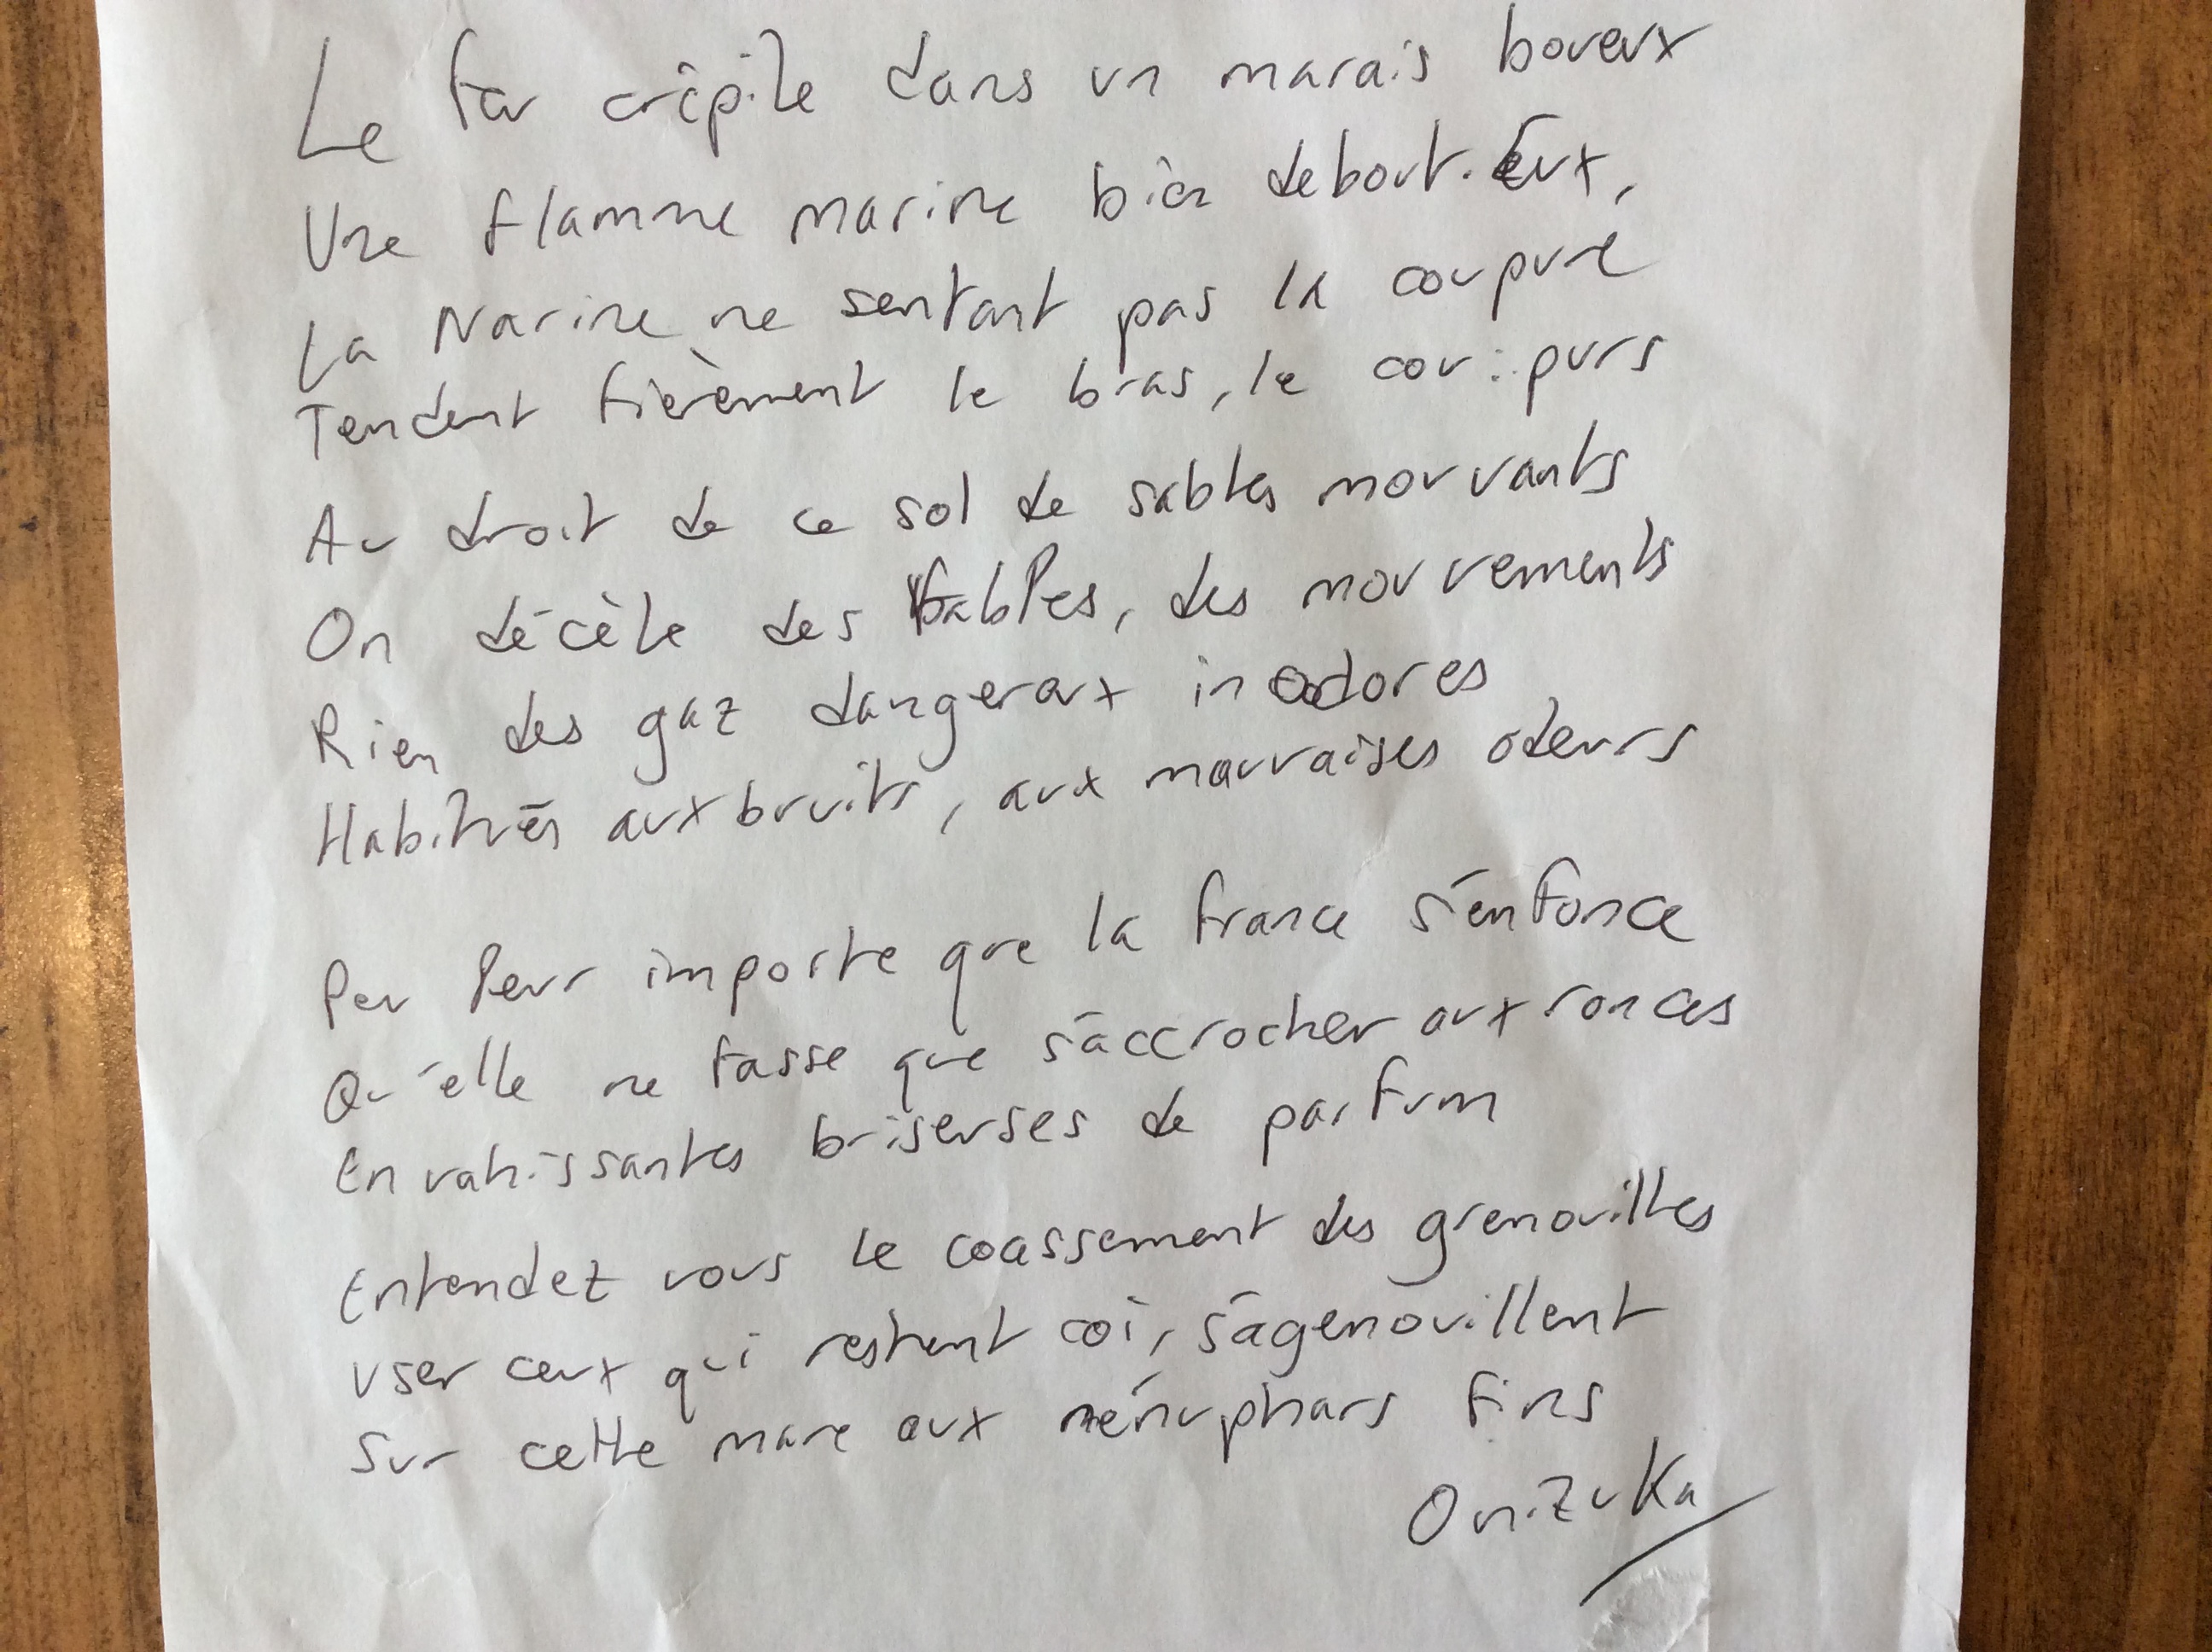 Le feu crépite dans un marais boueux
Une flamme marine bien debout. Eux,
La Narine ne sentant pas la coupure
Tendent fièrement le bras, le cou : purs
Au droit de ce sol de sables mouvants
On décèle des fables, des mouvements
Rien des gaz dangereux inodores
Habitués aux bruits, aux mauvaises odeurs
Peu leur importe que la france s'enfonce
Qu'elle ne fasse que s'accrocher aux ronces
Envahissantes briseuses de parfum
Entendez vous le coassement des grenouilles
User ceux qui restent coi, s'agenouillent
Sur cette mare aux nénuphars fins
Onizuka